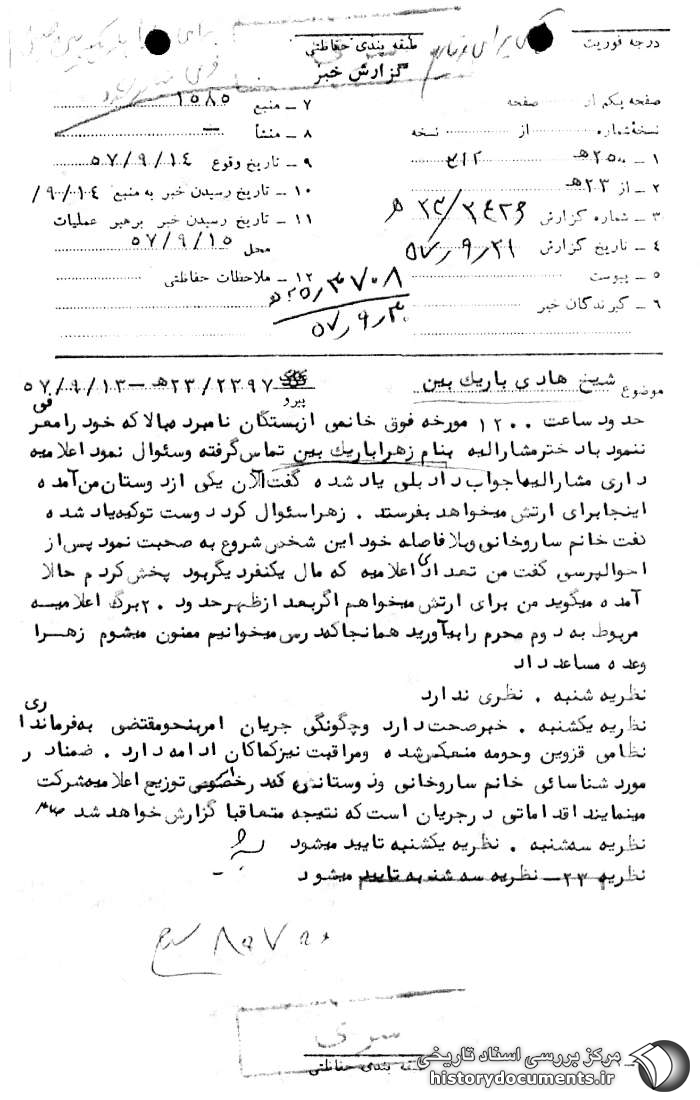 درجه فوریت
طبقه بندی حفاظتی
گزارش خبر
صفحه یکم از صفحه
نسخهٔ شماره از نسخه
۱ ــ ۲۵۰۰هـ ۳۱۲
۲ ــ از ۲۳هـ
۳ ــ شماره گزارش ۲۳/۲۴۲۶ هـ
۴ ــ تاریخ گزارش ۵۷/۹/۲۱
۵ ــ پیوست
۶ ــ گیرندگان خبر
۷ ــ منبع ۱۵۸۵
۸ ــ منشأ ــ
۹ ــ تاریخ وقوع ۵۷/۹/۱۴
۱۰ ــ تاریخ رسیدن خبر به منبع ۹/۱۴/
۱۱ ــ تاریخ رسیدن خبر برهبر عملیات
محل ۵۷/۹/۱۵
۱۲ ــ ملاحظات حفاظتی
۲۵/۳۷۰۸ هـ
۵۷/۹/۳۰
موضوع شیخ هادی باریک بین
پیرو ۲۳/۲۳۹۷هـ ــ ۵۷/۹/۱۳
حدود ساعت ۱۲۰۰ مورخه فوق خانمی ازبستگان نامبرد مبالا که خود را معرفی
ننمود باد خترمشارالیه بنام زهراباریک بین تماس گرفته وسئوال نمود اعلامیه
داری مشارالیهاجواب داد بلی یاد شده گفت الان یکی ازد وستان من آمده
اینجابرای ارتش میخواهد بفرستد . زهراسئوال کرد د وست توکیه یاد شده
گفت خانم ساروخانی وبلافاصله خود این شخص شروع به صحبت نمود پس از
احوالپرسی گفت من تعدادی اعلامیه که مال یکنفرد یگربود پخش کردم حالا
آمده میگوید من برای ارتش میخواهم اگربعد ازظهرحدود ۲۰ برگ اعلامیه
مربوط به دوم محرم رابیآورید همانجاکه درس میخوانیم ممنون میشوم زهرا
وعده مساعد داد
نظریه شنبه . نظری ندارد
نظریه یکشنبه . خبرصحت دارد وچگونگی جریان امربنحومقتضی به فرمانداری
نظامی قزوین وحومه منعکس شده ومراقبت نیزکماکان ادامه دارد . ضمنا در
مورد شناسائی خانم ساروخانی ود وستانش که درخصوص توزیع اعلامیه شرکت
مینمایند اقداماتی درجریان است که نتیجه متعاقبا گزارش خواهد شد
نظریه سه شنبه . نظریه یکشنبه تایید میشود
نظریه ۲۳ــ نظریه سه شنبه تایید میشود
سری
طبقه بندی حفاظتی
مرکز بررسی اسناد تاریخی
historydocuments.ir